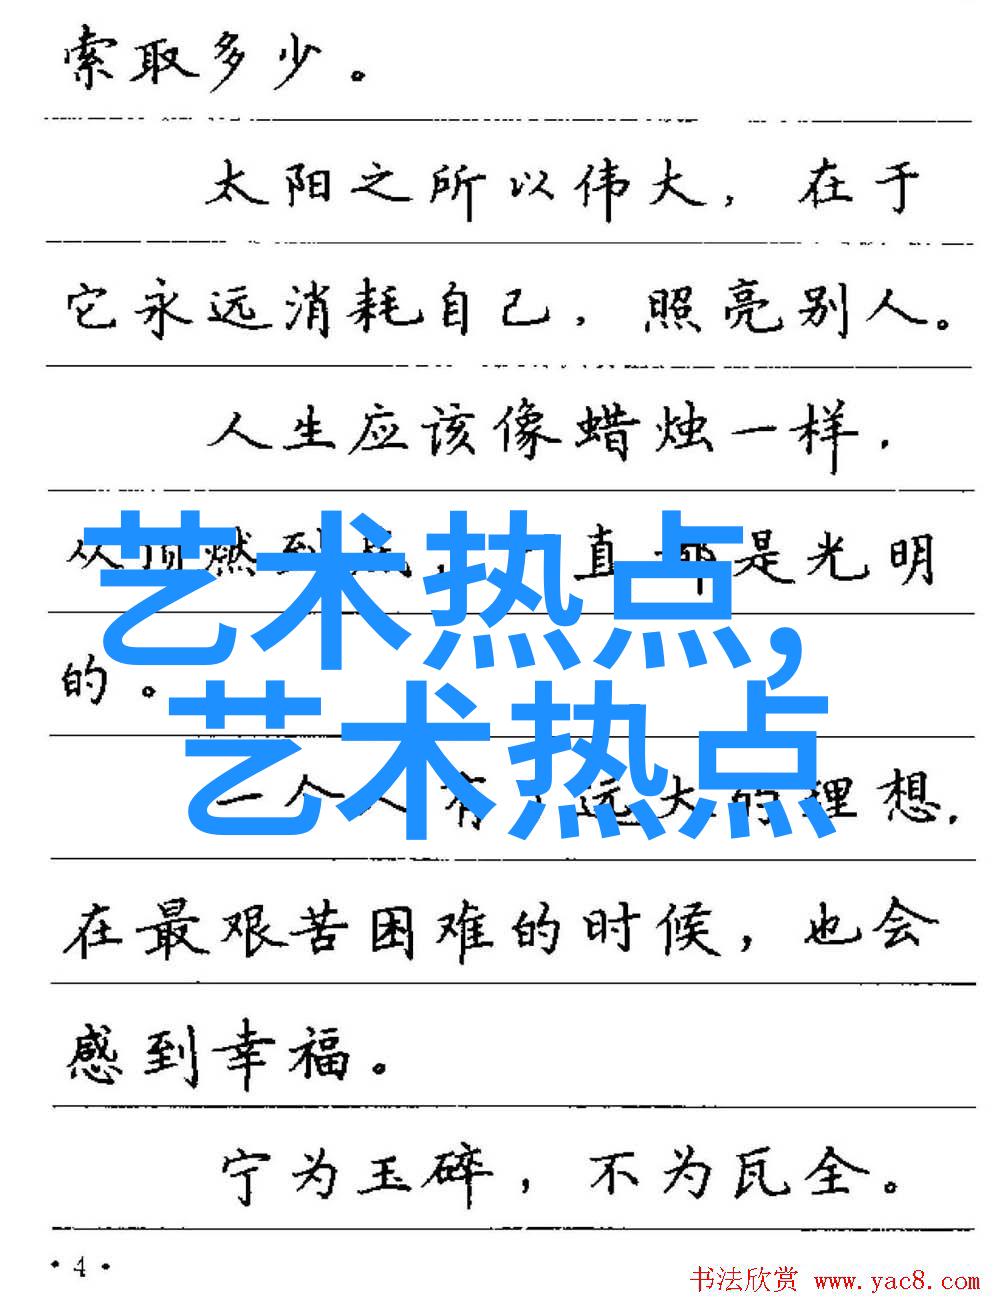 索取多少。
太阳之所以伟大，在于
它永远消耗自己，照亮别人。
人生应该像蜡烛一样.
从顶燃到底，一直都是光明
的。
艺术热点,
艺术热点
一个人有了远大的理想.
在最艰苦困难的时候，也会
感到幸福。
宁为玉碎，不为瓦全。
·4·
书法欣赏 www.yac8.com